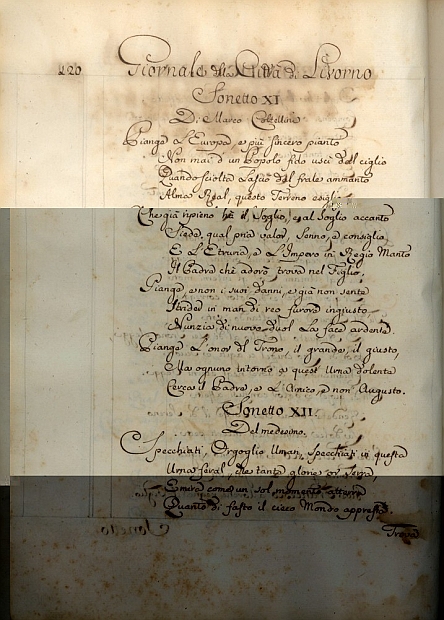 120 Giornale della Città di Livorno
Sonetto XI
Di Marco Coltellini
Pianga l'Europa, e più sincero pianto
Non mai d'un Popolo fido uscì dal ciglio
Quando sciolta lasciò del frale ammanto
Alma Real, questo Terreno esiglio
Che già ripieno hà il Soglio, e al Soglio accanto
Siede, qual pria valor, Senno, e consiglio
E l'Etruria, e l'Impero in Regio Manto
Il Padre che adorò trova nel Figlio,
Pianga, e non i suoi danni, e già non sente
Strider in man di reo furore ingiusto
Nunzia di nuovo duol la face ardente.
Pianga l'onor del Trono il grande, il giusto,
Ma ognuno intorno a quest'Urna dolente
Cerca il Padre, e l'Amico, e non Augusto.
Sonetto XII
Del medesimo.
Specchiati, Orgoglio Uman, Specchiati in questa
Urna feral, che tanta gloria or serra,
E mira come un sol momento atterra
Quanto di fasto il cieco Mondo appresta.
Trova